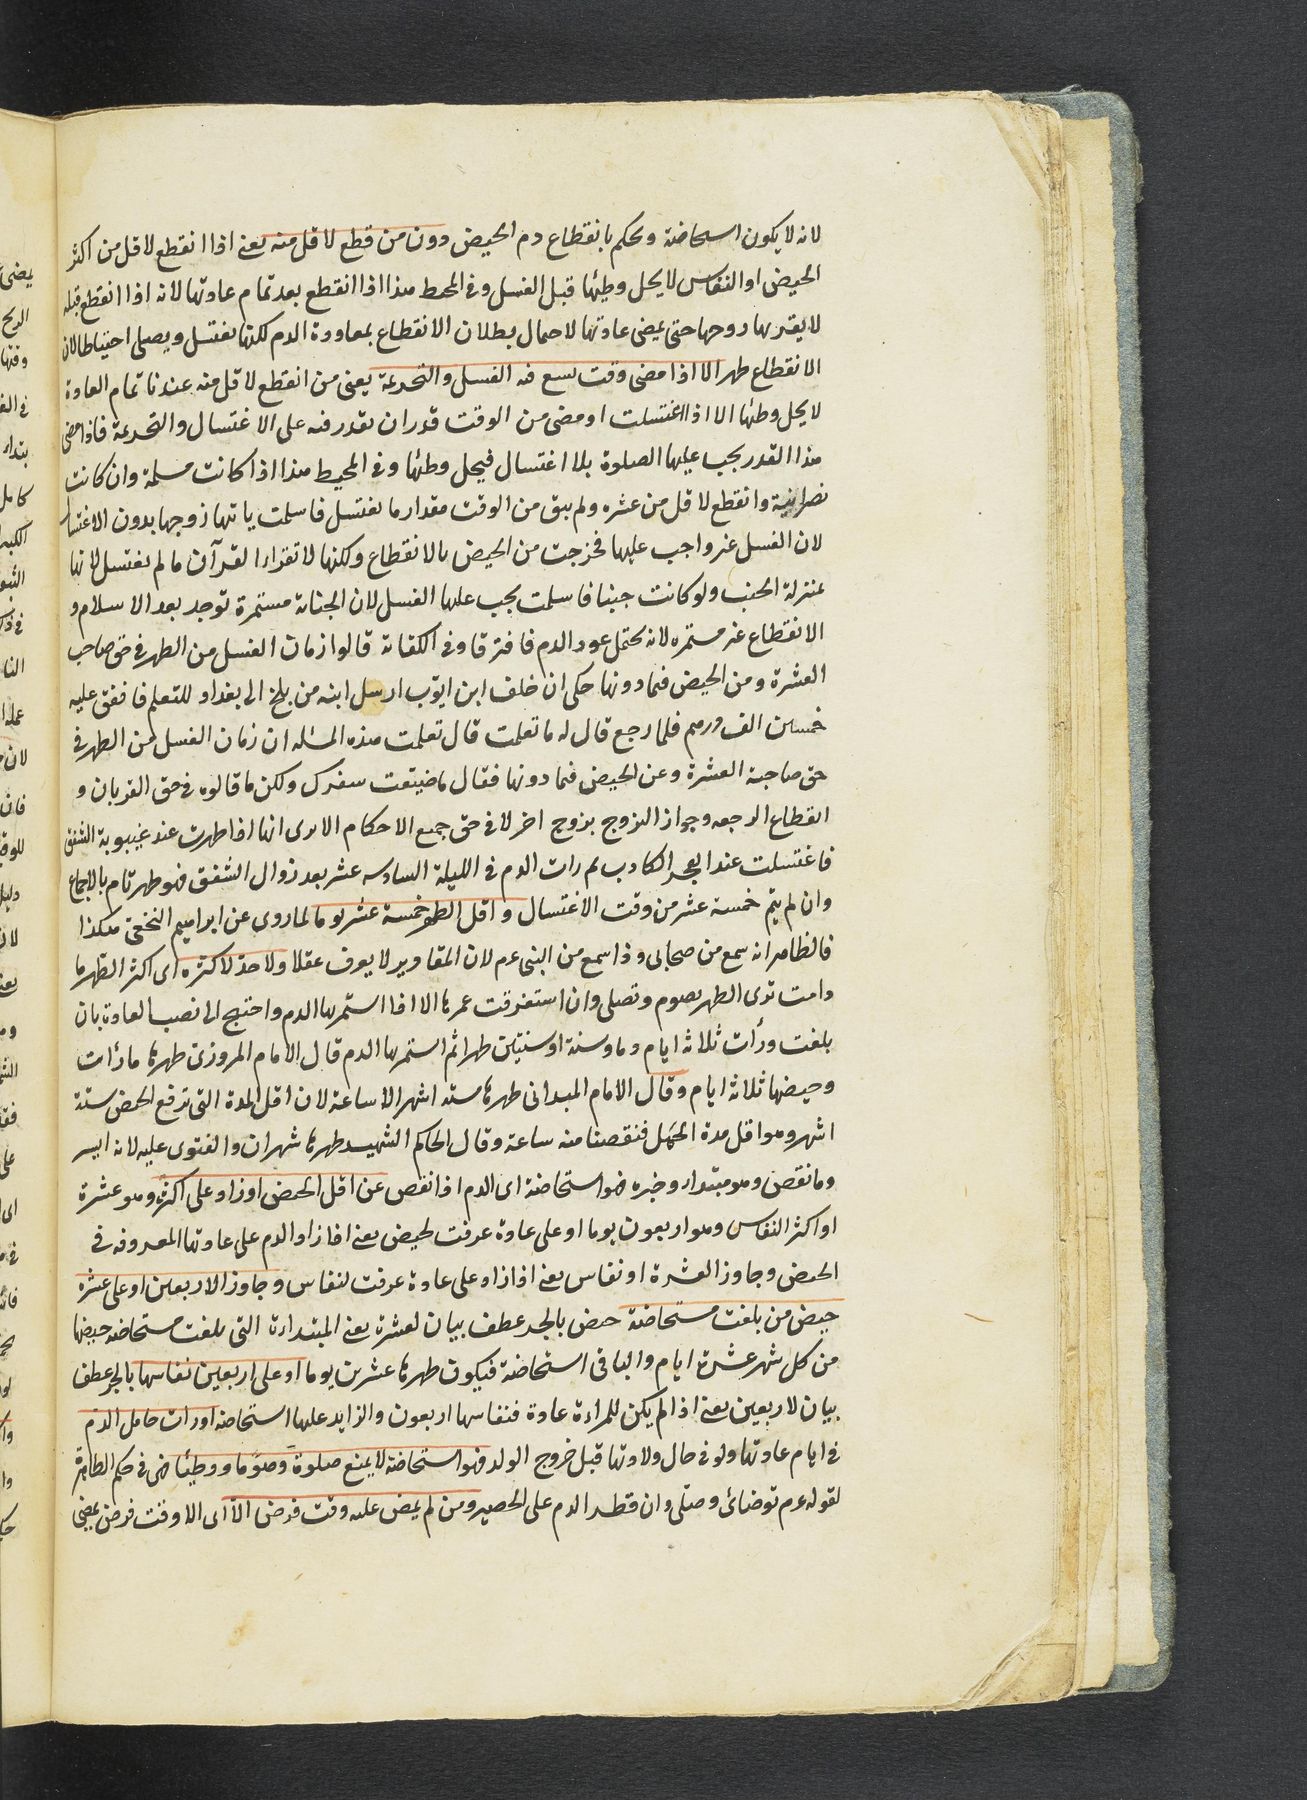 لانه لا يكون استحاضة ويحكم بانقطاع دم الحيض دون من قطع لا قل منه يعنى اذا انقطع لاقل من اكثر
الحيض او النفاس لا يحل وطيئها قبل الغسل وفى المحيط هذا اذا انقطع بعد تمام عادتها لانه اذا انقطع قبله
لا يقربها زوجها حتى يمضى عادتها لاحتمال بطلان الانقطاع بمعاودة الدم لكنها تغتسل ويصلى احتياطا لان
الانقطاع طهر الا اذا مضى وقت يسع فيه الغسل والتحريمة يعنى من انقطع لاقل منه عندنا تمام العادة
لا يحل وطئها الا اذا اغتسلت او مضى من الوقت قدر ان تقدر فيه على الاغتسال والتحريمة فاذا مضى
هذا القدر يجب عليها الصلوة بلا اغتسال فيحل وطئها وفى المحيط هذا اذا كانت مسلمة وان كانت
نصرانية وانقطع لاقل من عشره ولم يبق من الوقت مقدار ما تغتسل فاسلمت ياتها زوجها بدون الاغتسال
لان الغسل غير واجب عليها فخرجت من الحيض بالانقطاع ولكنها لا تقراء القرآن ما لم تغتسل لانها
بمنزلة الجنب ولو كانت جنبا فاسلمت يجب عليها الغسل لان الجنابة مستمرة توجد بعد الاسلام و
الانقطاع غير مستمره لانه يحتمل عود الدم فافترقا وفى الكفاية قالوا زمان الغسل من الطهر فى حق صاحب
العشرة ومن الحيض فيما دونها حكى ان خلف ابن ايوّب ارسل ابنه من بلخ الى بغداد للتعلم فانفق عليه
خمسين الف درهم فلما رجع قال له ما تعلمت قال تعلمت هذه المسئله ان زمان الغسل من الطهر فى
حق صاحبة العشرة وعن الحيض فيما دونها فقال ما ضيّعت سفرك ولكن ما قالوه فى حق القربان و
انقطاع الرجعه وجواز التزوج بزوج اخر لا فى حق جميع الاحكام الا يرى انها اذا طهرت عند غيبوبة الشفق
فاغتسلت عند الفجر الكاذب ثم رات الدم فى الليلة السادسه عشر بعد زوال الشفق فهو طهر تام بالاجماع
وان لم يتم خمسة عشر من وقت الاغتسال واقل الطهر خمسة عشر يوما لما روى عن ابراهيم النخعى هكذا
فالظاهر انه سمع من صحابى وذا سمع من النبى عم لان المقادير لا يعرف عقلا ولا حد لاكثره اى اكثر الطهر ما
دامت ترى الطهر تصوم وتصلى وان استغرقت عمرها الا اذا استمر بها الدم واحتج الى نصب العادة بان
بلغت ورأت ثلاثة ايام دما وسنة او سنتين طهرا ثم استمر بها الدم قال الامام المروزى طهرها ما رأت
وحيضها ثلاثة ايام وقال الامام الميدانى طهرها ستة اشهر الا ساعة لان اقل المدة التى ترفع الحيض ستة
اشهر وهو اقل مدة الحمل فنقصنا منه ساعة وقال الحاكم الشهيد طهرها شهران والفتوى عليه لانه ايسر
وما نقص وهو مبتداء وخبره هو استحاضة اى الدم اذا نقص عن اقل الحيض او زاد على اكثره وهو عشرة
او اكثر النفاس وهو اربعون يوما او على عادة عرفت لحيض يعنى اذا زاد الدم على عادتها المعروفه فى
الحيض وجاوز العشرة او نفاس يعنى اذا زاد على عادة عرفت لنفاس وجاوز الاربعين او على عشره
حيض من بلغت مستحاضة حيض بالجر عطف بيان لعشرة يعنى المبتدأة التى بلغت مستحاضة حيضها
من كل شهر عشرة ايام والباقى استحاضة فيكون طهرها عشرين يوما او على اربعين نفاسها بالجر عطف
بيان لاربعين يعنى اذا لم يكن للمراءة عادة فنفاسها اربعون والزايد عليها استحاضه او رات حامل الدم
فى ايام عادتها ولو فى حال ولادتها قبل خروج الولد فهو استحاضة لا يمنع صلوة وصومًا ووطيئا هى فى حكم الطاهرة
لقوله عم توضائ وصلّى وان قطر الدم على الحصير ومن لم يمض عليه وقت فرض الا اى الا وقت فرض يمضى